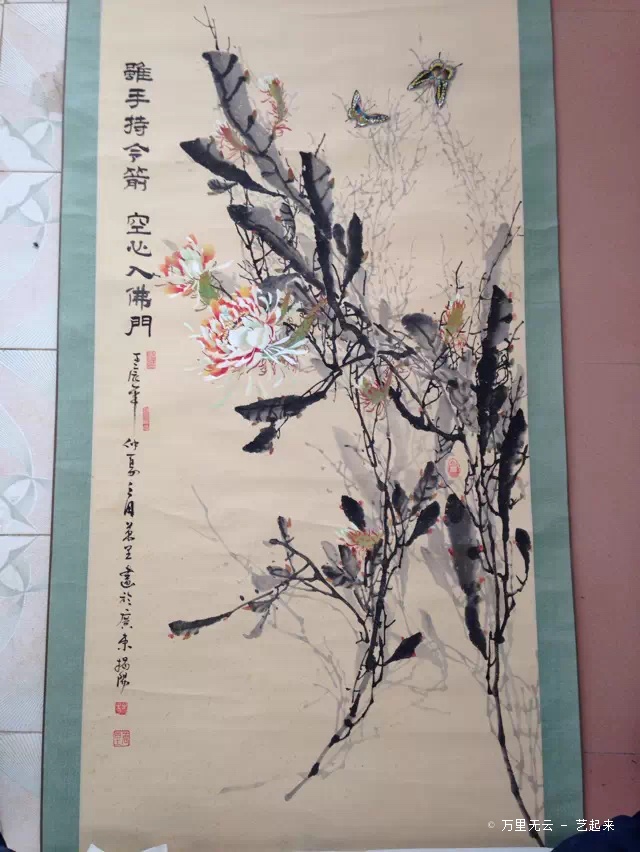 雖手持令箭 空心入佛門
壬辰年仲夏之月若呈畫於廣東揭陽
© 万里无云 - 艺起来